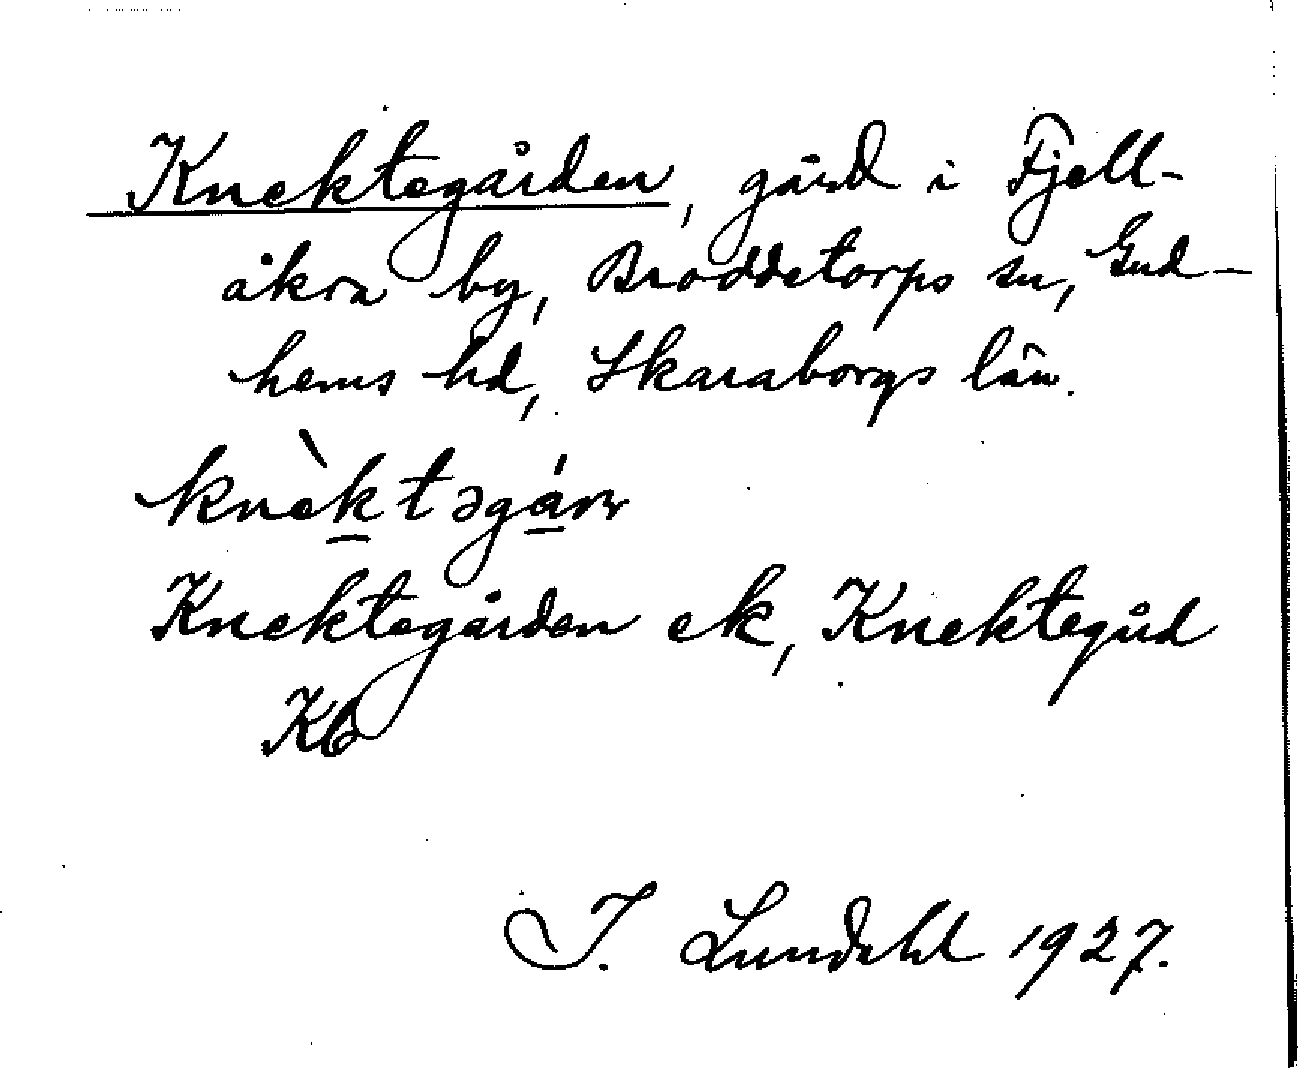 Knektegården, gård i Fjell-
åkra by, Broddetorps sn, Gud-
hems hd, Skaraborgs län.
knèktəgáɳ
Knektegården ek, Knektegård
Kb
I. Lundahl 1927.